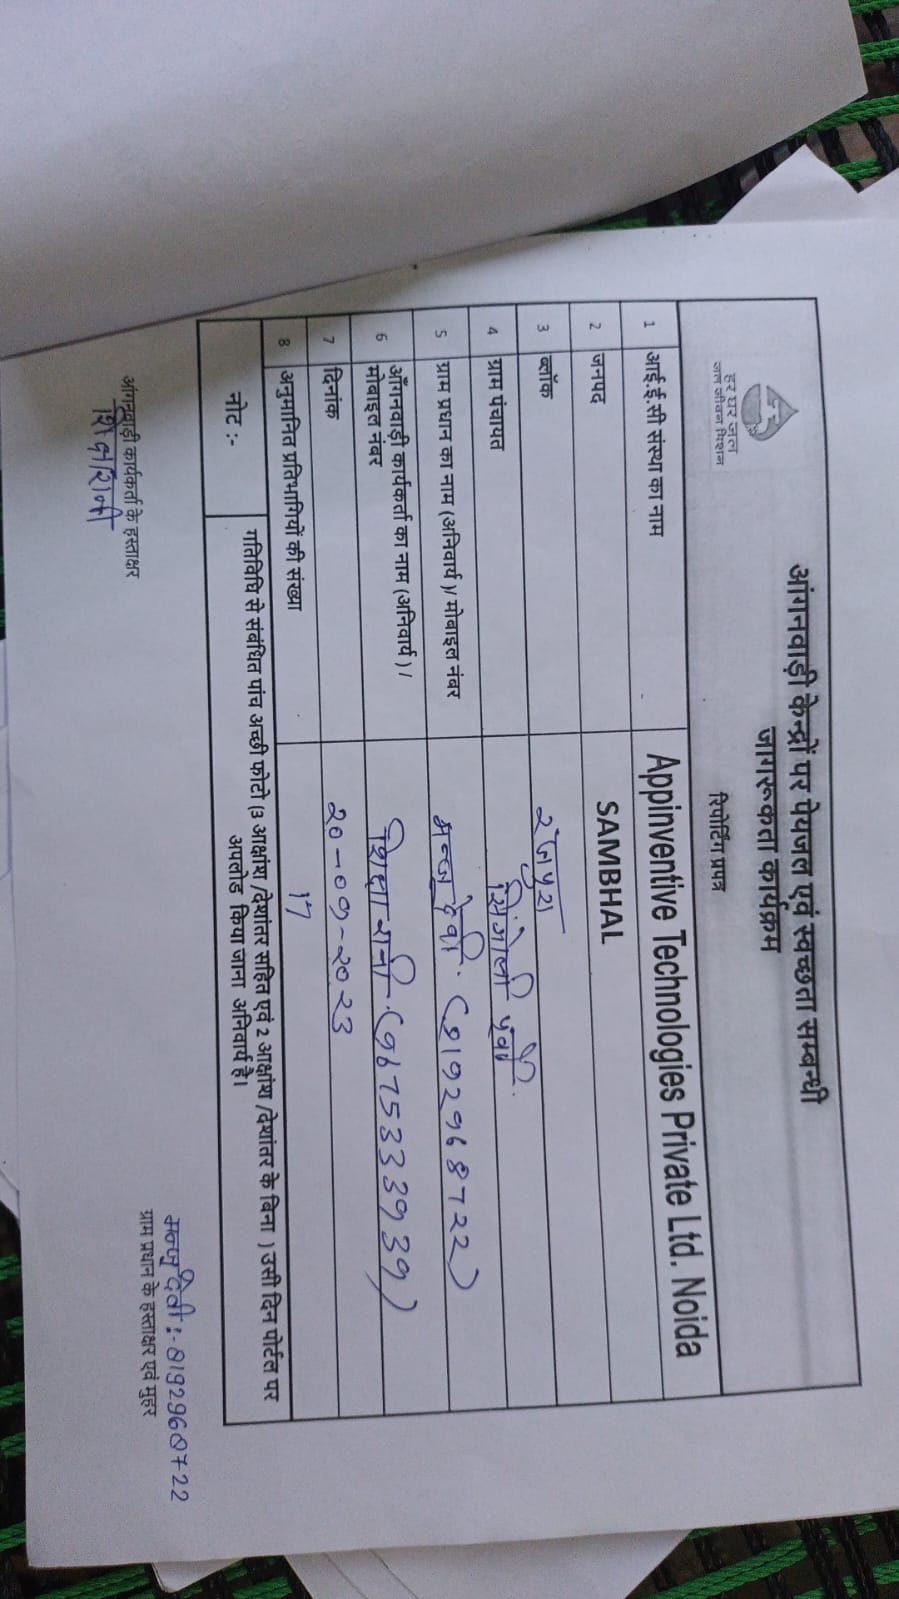 हर घर जल
जल जीवन मिशन
आंगनवाड़ी केन्द्रों पर पेयजल एवं स्वच्छता सम्बन्धी
जागरूकता कार्यक्रम
रिपोर्टिंग प्रपत्र
1 आई.ई.सी संस्था का नाम Appinventive Technologies Private Ltd. Noida
2 जनपद SAMBHAL
3 ब्लॉक रजपुरा
4 ग्राम पंचायत सिंगोली पूर्वी
5 ग्राम प्रधान का नाम (अनिवार्य )/ मोबाइल नंबर मन्जू देवी. (8192968722)
6 आँगनवाड़ी कार्यकर्ता का नाम (अनिवार्य ) /
मोबाइल नंबर शिक्षा रानी. (9675333939)
7 दिनांक 20-09-2023
8 अनुमानित प्रतिभागियों की संख्या 17
नोट :- गतिविधि से संबंधित पांच अच्छी फोटो (3 आक्षांश /देशांतर सहित एवं 2 आक्षांश /देशांतर के बिना ) उसी दिन पोर्टल पर
अपलोड किया जाना अनिवार्य है।
आंगनवाड़ी कार्यकर्ता के हस्ताक्षर
मन्जू देवी :- 8192968722
ग्राम प्रधान के हस्ताक्षर एवं मुहर